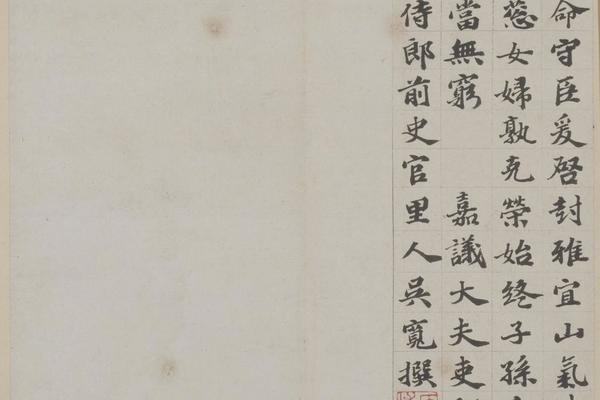 命守臣爰啓封雅宜山氣
慈女婦孰克榮始終子孫
當無窮 嘉議大夫吏
侍郎前史官里人吳寬撰